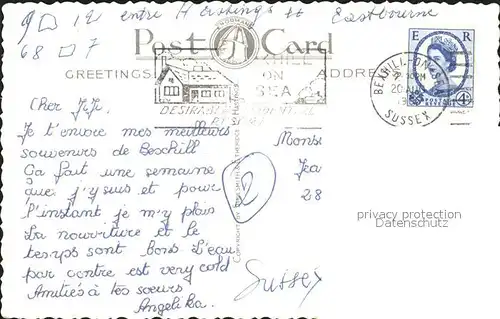 9 □ 12 entre Hastings et Eastbourne
68 □ 7
Post Card
GREETINGS
ADDRESS
BEXHILL
ON
SEA
DESIRABLE
RESORT
BEXHILL-ON-SEA
SUSSEX
E R
Cher J.J.
Je t'envoie mes meilleurs
souvenirs de Bexhill
Ça fait une semaine
que j'y suis et pour
l'instant je m'y plais
La nourriture et le
temps sont bons L'eau
par contre est very cold
Amitiés à tes soeurs
Angelika.
Monsi
Jea
28
2
Sussex
privacy protection
Datenschutz